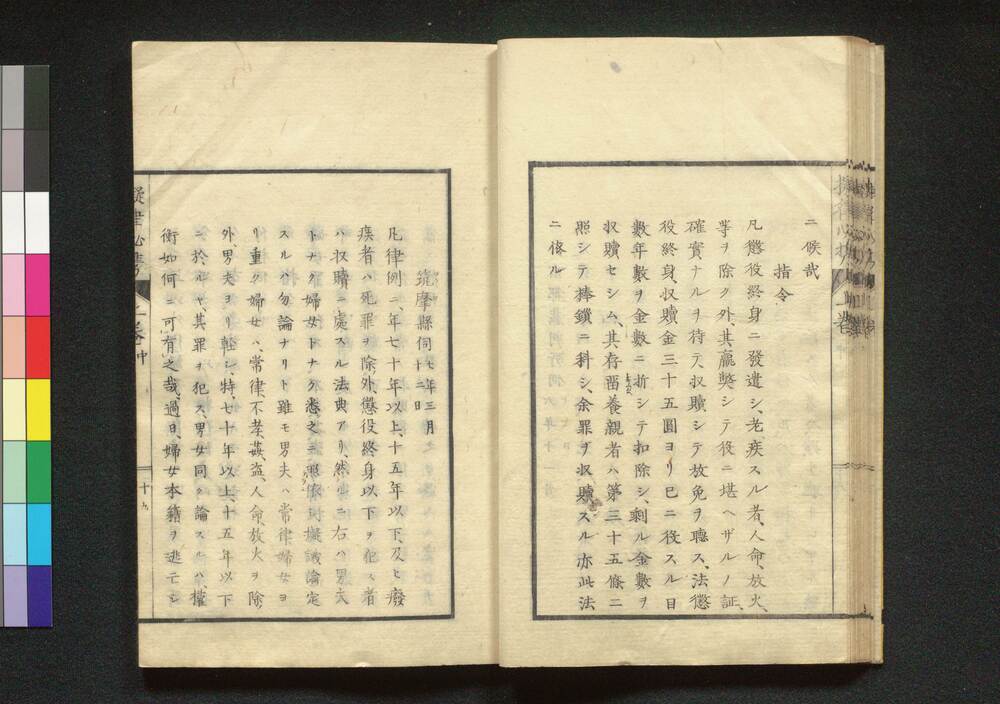 ニ候哉
指令
凡懲役終身ニ發遣シ、老疾スル者、人命、放火、
等ヲ除ク外、其羸獘シテ役ニ堪ヘザルノ証、
確實ナルヲ待テ収贖シテ放免ヲ聴ス、法懲
役終身、収贖金三十五圓ヨリ已ニ役スル日
數年數ヲ金數ニ折シテ扣除シ、剰ル金數ヲ
収贖セシム、其存留養親者ハ第三十五條ニ
照シテ棒鎖ニ科シ、余罪ヲ収贖スル亦此法
ニ依ル
筑摩縣伺 七年三月十二日
凡律例ニ、年七十年以上、十五年以下、及ヒ癈
疾者ハ死罪ヲ除外、懲役終身以下ヲ犯ス者
ハ収贖ニ處スル法典アリ、然ルニ右ハ男夫
トナク婦女トナク悉之ニ照依
擬議論定
スルハ勿論ナリト雖モ男夫ハ常律婦女ヨ
リ重ク婦女ハ、常律不孝、姦、盗、人命、放火ヲ除
外、男夫ヨリ輕シ、特、七十年以上、十五年以下
ニ於ルヤ、其罪ヲ犯ス、男女同ク論スルハ、權
衡如何ニ可有之哉、過日、婦女本籍ヲ逃亡シ
十九